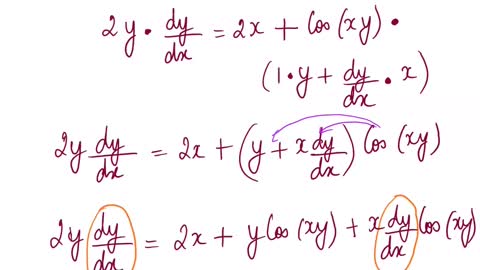 2y · dy/dx = 2x + Cos(xy) ·
(1·y + dy/dx · x)
2y dy/dx = 2x + (y + x dy/dx) Cos(xy)
2y dy/dx = 2x + y Cos(xy) + x dy/dx Cos(xy)